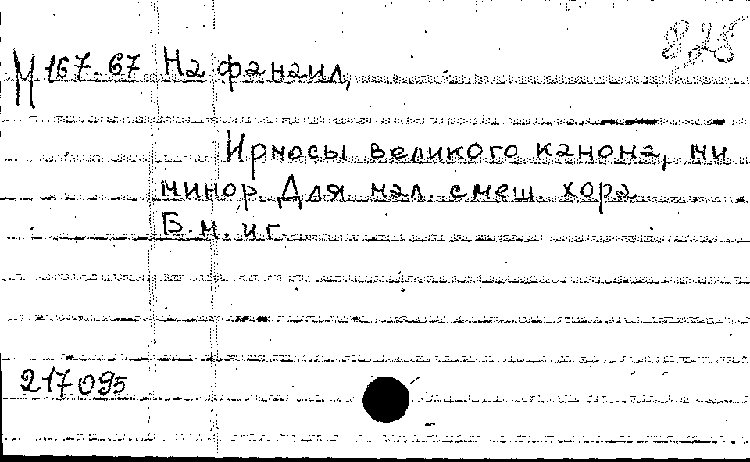 8,25
М 167.67 Нафанаил,
Ирмосы великого канона, ми
минор. Для мал. смеш. хора
Б.м. и г.
217095